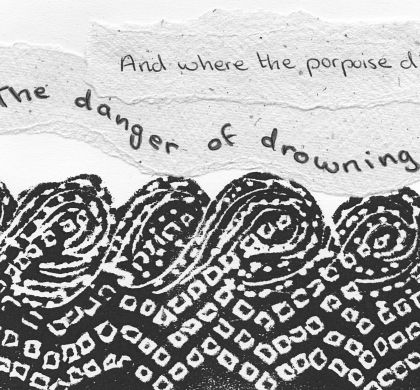 And where the porpoise d
The danger of drowning